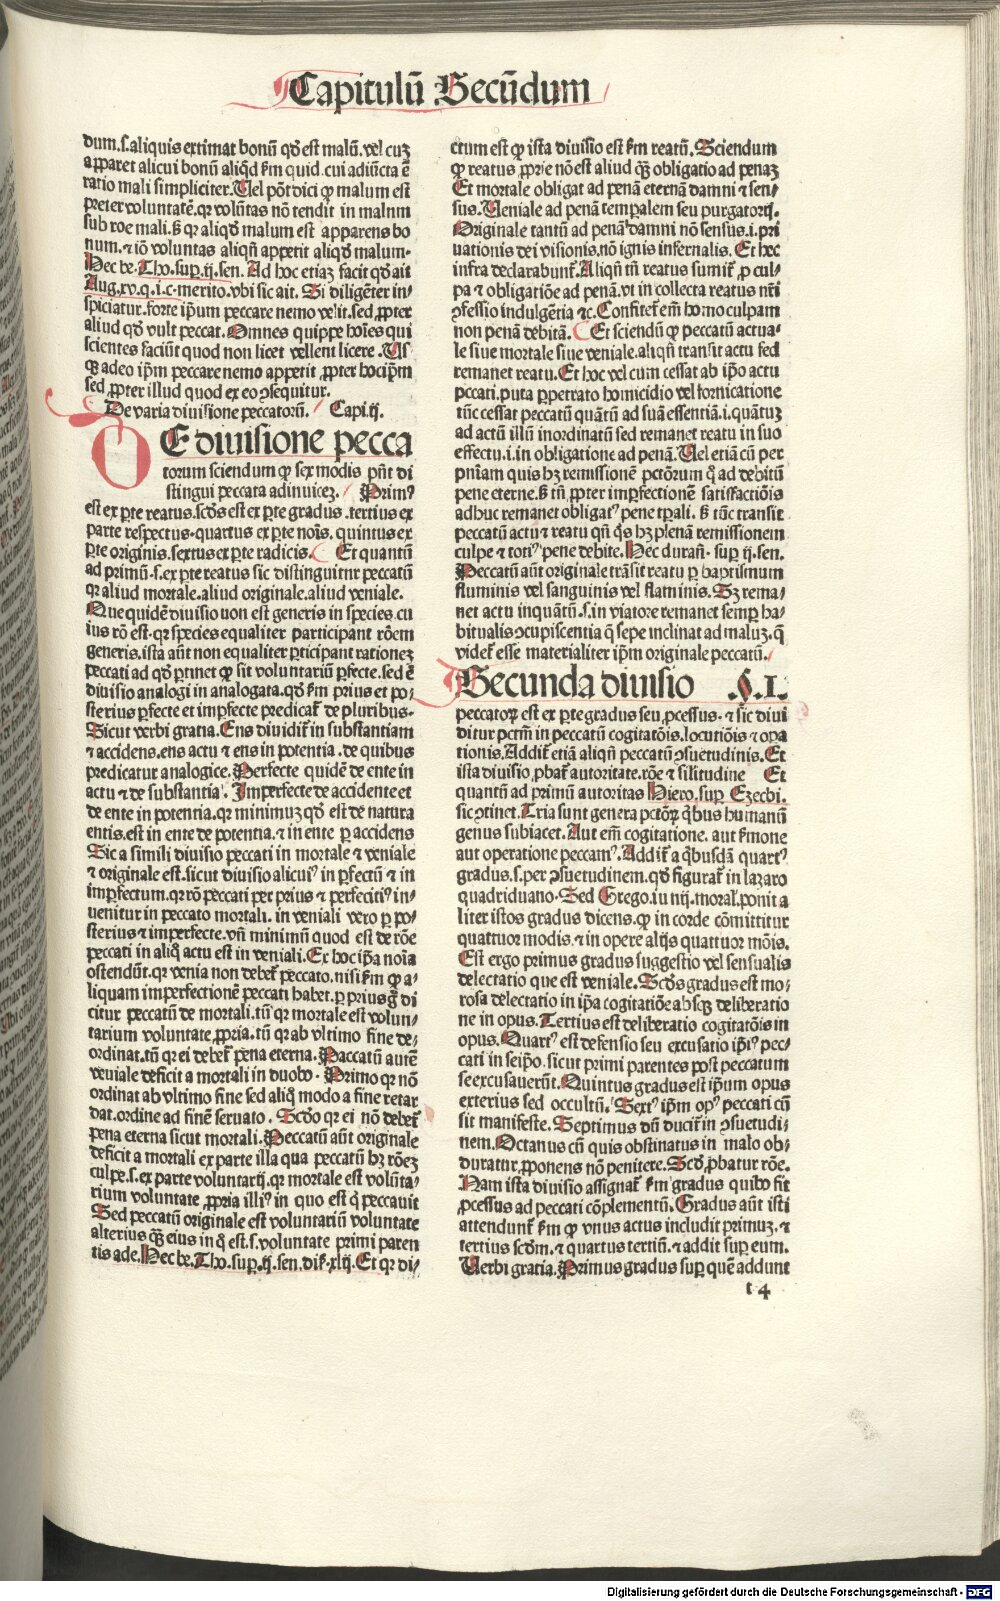 Capitulū Secūdum
dum.s.aliquis extimat bonū qđ est malū. vel cuȝ
apparet alicui bonū aliqđ ẜm quid.cui adiūcta ē
ratio mali simpliciter. Uel pōt dici ꝙ malum est
preter voluntatē.qꝛ volūtas nō tendit in malum
sub roe mali.ẜ qꝛ aliqđ malum est apparens bo
num.⁊ iō voluntas aliqñ appetit aliqđ malum.
Hec be.Tho.suꝑ.ij.sen. Ad hoc etiaȝ facit qđ ait
Aug.xv.q.i.c.merito.vbi sic ait. Si diligēter in⸗
spiciatur.forte ipm̄ peccare nemo velit.sed ꝓpter
aliud qđ vult peccat. Omnes quippe hoīes qui
scientes faciūt quod non licet vellent licere. Us
qꝫ adeo ipm̄ peccare nemo appetit ꝓpter hoc ipm̄
sed ꝓpter illud quod ex eo ↄsequitur.
De varia diuisione peccatorū. Capi.ij.
DE diuisione pecca
torum sciendum ꝙ sex modis pn̄t di
stingui peccata adinuiceȝ. Primꝰ
est ex ꝑte reatus.scđs est ex ꝑte gradus.tertius ex
parte respectus.quartus ex ꝑte noīs.quintus ex
ꝑte originis.sextus ex ꝑte radicis. Et quantū
ad primū.s.ex ꝑte reatus sic distinguitur peccatū
qꝛ aliud mortale.aliud originale.aliud veniale.
Que quidē diuisio uon est generis in species.cu
ius rō est.qꝛ species equaliter participant rōem
generis.ista aūt non equaliter ꝑticipant rationeȝ
peccati ad qđ ꝑtinet ꝙ sit voluntariū ꝑfecte.sed ē
diuisio analogi in analogata.qđ ẜm prius et po⸗
sterius ꝑfecte et imꝑfecte predicat̄ de pluribus.
Sicut verbi gratia. Ens diuidit̄ in substantiam
⁊ accidens.ens actu ⁊ ens in potentia.de quibus
predicatur analogice. Perfecte quidē de ente in
actu ⁊ de substantia. Imperfecte de accidente et
de ente in potentia.qꝛ minimuȝ qđ est de natura
entis.est in ente de potentia.⁊ in ente ꝑ accidens
Sic a simili diuisio peccati in mortale ⁊ veniale
⁊ originale est.sicut diuisio alicuiꝰ in ꝑfectū ⁊ in
imꝑfectum.qꝛ rō peccati per prius ⁊ perfecitiꝰ in⸗
uenitur in peccato mortali.in veniali vero ꝑ po⸗
sterius ⁊ imperfecte.vn̄ minimū quod est de rōe
peccati in aliq̄ actu est in veniali. Ex hoc ip̄a noīa
ostendūt.qꝛ venia non debet̄ peccato.nisi ẜm ꝙ a⸗
liquam imperfectionē peccati habet.ꝑ prius g̊ di
citur peccatū de mortali.tū qꝛ mortale est volun⸗
tarium voluntate ꝓpria.tū qꝛ ab vltimo fine de⸗
ordinat.tū qꝛ ei debet̄ pena eterna. Paccatū autē
veuiale deficit a mortali in duobꝰ. Primo qꝛ nō
ordinat ab vltimo fine sed aliq̄ modo a fine retar
dat.ordine ad finē seruato. Scđo qꝛ ei nō debet̄
pena eterna sicut mortali. Peccatū aūt originale
deficit a mortali ex parte illa qua peccatū hȝ rōeȝ
culpe.s.ex parte voluntarij.qꝛ mortale est volūta⸗
rium voluntate ꝓpria illiꝰ in quo est q̄ peccauit
Sed peccatū originale est voluntariū voluntate
alterius qꝫ eius in q̄ est.s.voluntate primi paren
tis ade. Hec be.Tho.suꝑ.ij.sen.dis̄.xlij. Et qꝛ di⸗
ctum est ꝙ ista diuisio est ẜm reatū. Sciendum
ꝙ reatus ꝓprie nō est aliud qꝫ obligatio ad penaȝ
Et mortale obligat ad penā eternā damni ⁊ sen⸗
sus. Ueniale ad penā temꝑalem seu purgatorij.
Originale tantū ad penā damni nō sensus.i.pri
uationis dei visionis.nō ignis infernalis. Et hec
infra declarabunt̄. Aliqñ tn̄ reatus sumit̄ ꝓ cul⸗
pa ⁊ obligatiōe ad penā.vt in collecta reatus nr̄i
ↄfessio indulgētia ⁊c. Confitet̄ em̄ homo culpam
non penā debitā. Et sciendū ꝙ peccatū actua⸗
le siue mortale siue veniale.aliqñ transit actu sed
remanet reatu. Et hoc vel cum cessat ab ip̄o actu
pccati.puta ꝑpetrato homicidio vel fornicatione
tūc cessat peccatū quātū ad suā essentiā.i.quātuȝ
ad actū illū inordinatū sed remanet reatu in suo
effectu.i.in obligatione ad penā. Uel etiā cū per
pn̄iam quis hȝ remissionē pctōrum q̄ ad debitū
pene eterne.ẜ tn̄ ꝓpter imꝑfectionē satisfactiōis
adhuc remanet obligatꝰ pene tꝑali.ẜ tūc transit
peccatū actu ⁊ reatu qn̄ q̄s hȝ plenā remissionem
culpe ⁊ totiꝰ pene debite. Hec durañ.suꝑ ij.sen.
Peccatū aūt originale trāsit reatu ꝑ baptismum
fluminis vel sanguinis vel flaminis. Sȝ rema⸗
net actu inquātū.s.in viatore remanet semꝑ ha⸗
bitualis ↄcupiscentia q̄ sepe inclinat ad maluȝ.q̄
videt̄ esse materialiter ip̄m originale peccatū.
Secunda diuisio .§.I.
peccatoꝝ est ex ꝑte gradus seu ꝓcessus.⁊ sic diui
ditur pctm̄ in peccatū cogitatōis.locutiōis ⁊ opa
tionis. Addit̄ etiā aliqñ peccatū ↄsuetudinis. Et
ista diuisio ꝓbat̄ autoritate.rōe ⁊ silitudine Et
quantū ad primū autoritas Hiero.suꝑ Ezechi.
sic ↄtinet. Tria sunt genera pctōꝝ q̄bus humanū
genus subiacet. Aut em̄ cogitatione.aut ẜmone
aut operatione peccamꝰ. Addit̄ a q̄busdā quartꝰ
gradus.s.per ↄsuetudinem.qđ figurat̄ in lazaro
quadriduano. Sed Grego.iu iiij.moral̓.ponit a
liter istos gradus dicens.ꝙ in corde cōmittitur
quattuor modis.⁊ in opere alijs quattuor mōis.
Est ergo primus gradus suggestio vel sensualis
delectatio que est veniale. Scđs gradus est mo⸗
rosa delectatio in ip̄a cogitatiōe absqꝫ deliberatio
ne in opus. Tertius est deliberatio cogitatōis in
opus. Quartꝰ est defensio seu excusatio ip̄iꝰ pec⸗
cati in seip̄o.sicut primi parentes post peccatum
se excusauerūt. Quintus gradus est ip̄um opus
exterius sed occultū. Sextꝰ ip̄m opꝰ peccati cū
sit manifeste. Septimus dū ducit̄ in ↄsuetudi⸗
nem. Octanus cū quis obstinatus in malo ob⸗
duratur ꝓponens nō penitere. Scđo ꝓbatur rōe.
Nam ista diuisio assignat̄ ẜm gradus quibꝰ fit
ꝓcessus ad peccati cōplementū. Gradus aūt isti
attendunt̄ ẜm ꝙ vnus actus includit primuȝ.⁊
tertius scđm.⁊ quartus tertiū.⁊ addit suꝑ eum.
Uerbi gratia. Primus gradus suꝑ quē addunt
t 4
Digitalisierung gefördert durch die Deutsche Forschungsgemeinschaft - DFG